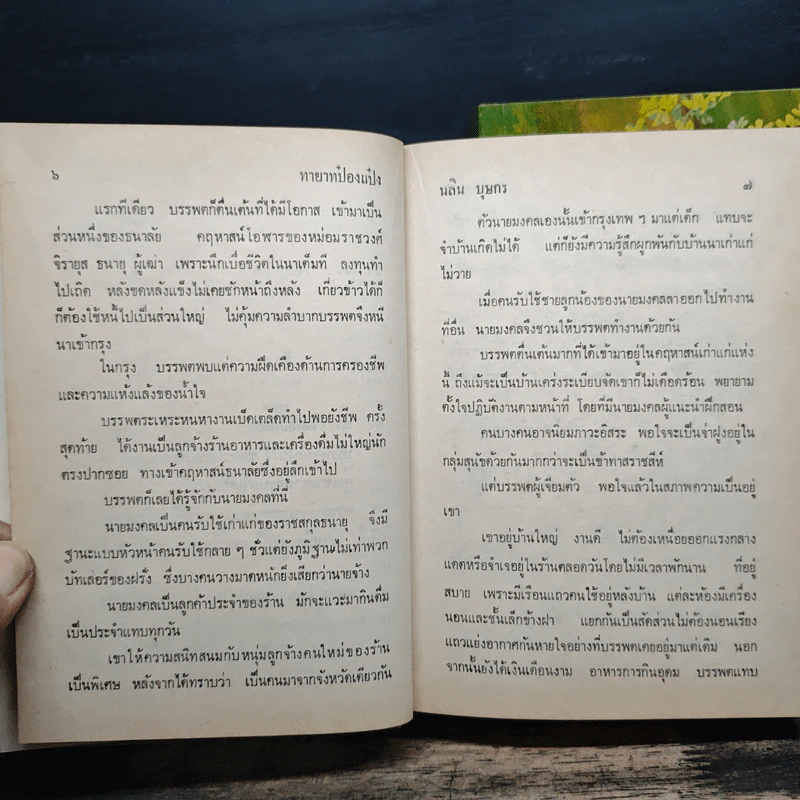 ๖ ทายาทป๋องแป๋ง
แรกทีเดียว บรรพตก็ตื่นเต้นที่ได้มีโอกาส เข้ามาเป็น
ส่วนหนึ่งของธนาลัย คฤหาสน์โอฬารของหม่อมราชวงศ์
จิรายุส ธนายุ ผู้เฒ่า เพราะนึกเบื่อชีวิตในนาเต็มที ลงทุนทำ
ไปเถิด หลังขดหลังแข็งไม่เคยชักหน้าถึงหลัง เกี่ยวข้าวได้ก็
ก็ต้องใช้หนี้ไปเป็นส่วนใหญ่ ไม่คุ้มความลำบากบรรพตจึงหนี
นาเข้ากรุง
ในกรุง บรรพตพบแต่ความฝืดเคืองด้านการครองชีพ
และความแห้งแล้งของน้ำใจ
บรรพตระเหระหนหางานเบ็ดเตล็ดทำไปพอยังชีพ ครั้ง
สุดท้าย ได้งานเป็นลูกจ้างร้านอาหารและเครื่องดื่มไม่ใหญ่นัก
ตรงปากซอย ทางเข้าคฤหาสน์ธนาลัยซึ่งอยู่ลึกเข้าไป
บรรพตก็เลยได้รู้จักกับนายมงคลที่นี่
นายมงคลเป็นคนรับใช้เก่าแก่ของราชสกุลธนายุ จึงมี
ฐานะแบบหัวหน้าคนรับใช้กลาย ๆ ชั่วแต่ยังภูมิฐานไม่เท่าพวก
บัทเล่อร์ของฝรั่ง ซึ่งบางคนวางมาดหนักยิ่งเสียกว่านายจ้าง
นายมงคลเป็นลูกค้าประจำของร้าน มักจะแวะมากินดื่ม
เป็นประจำแทบทุกวัน
เขาให้ความสนิทสนมกับหนุ่มลูกจ้างคนใหม่ของร้าน
เป็นพิเศษ หลังจากได้ทราบว่า เป็นคนมาจากจังหวัดเดียวกัน
นลิน บุษกร ๗
ตัวนายมงคลเองนั้นเข้ากรุงเทพ ฯ มาแต่เด็ก แทบจะ
จำบ้านเกิดไม่ได้ แต่ก็ยังมีความรู้สึกผูกพันกับบ้านนาเก่าแก่
ไม่วาย
เมื่อคนรับใช้ชายลูกน้องของนายมงคลลาออกไปทำงาน
ที่อื่น นายมงคลจึงชวนให้บรรพตทำงานด้วยกัน
บรรพตตื่นเต้นมากที่ได้เข้ามาอยู่ในคฤหาสน์เก่าแก่แห่ง
นี้ ถึงแม้จะเป็นบ้านเคร่งระเบียบจัดเขาก็ไม่เดือดร้อน พยายาม
ตั้งใจปฏิบัติงานตามหน้าที่ โดยที่มีนายมงคลผู้แนะนำฝึกสอน
คนบางคนอาจนิยมภาวะอิสระ พอใจจะเป็นจ่าฝูงอยู่ใน
กลุ่มสุนัขด้วยกันมากกว่าจะเป็นข้าทาสราชสีห์
แต่บรรพตผู้เจียมตัว พอใจแล้วในสภาพความเป็นอยู่
เขา
เขาอยู่บ้านใหญ่ งานดี ไม่ต้องเหนื่อยออกแรงกลาง
แดดหรือจำเจอยู่ในร้านตลอดวันโดยไม่มีเวลาพักนาน ที่อยู่
สบาย เพราะมีเรือนแถวคนใช้อยู่หลังบ้าน แต่ละห้องมีเครื่อง
นอนและชั้นเล็กข้างฝา แยกกันเป็นสัดส่วนไม่ต้องนอนเรียง
แถวแย่งอากาศกันหายใจอย่างที่บรรพตเคยอยู่มาแต่เดิม นอก
จากนั้นยังได้เงินเดือนงาม อาหารการกินอุดม บรรพตแทบ